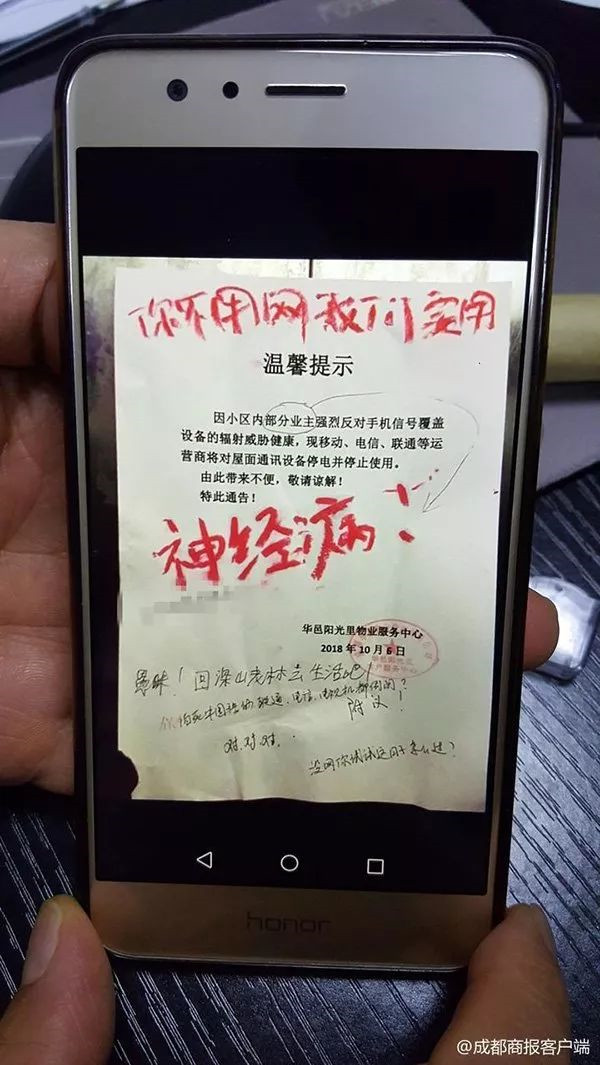 你不用网我们实用
温馨提示
因小区内部分业主强烈反对手机信号覆盖
设备的辐射威胁健康，现移动、电信、联通等运
营商将对屋面通讯设备停电并停止使用。
由此带来不便，敬请谅解！
特此通告！
神经病！
华邑阳光里物业服务中心
2018年10月6日
愚昧！回深山老林去生活吧！
附议！
对.对.对.
没网你试试这日子怎么过？
honor
@成都商报客户端